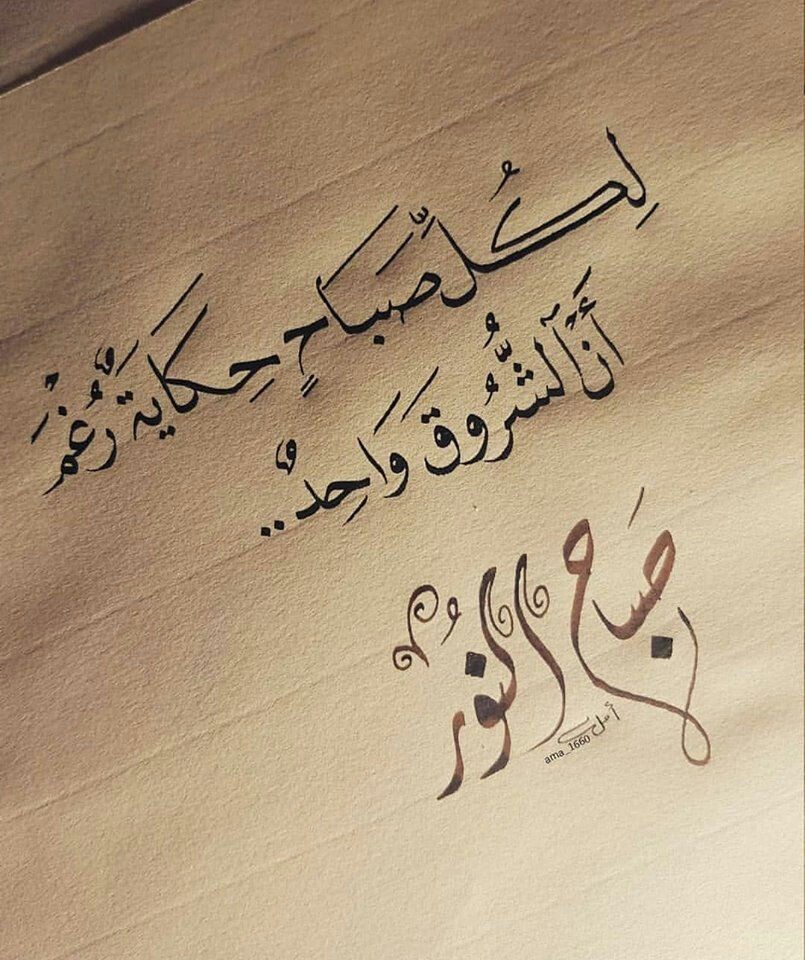 لِكُلِّ صَبَاحٍ حِكَايَةٌ رُغْمَ
أَنَّ ٱلشُّرُوقَ وَاحِدٌ..
صباح النُّورْ
أمل
ama_1660